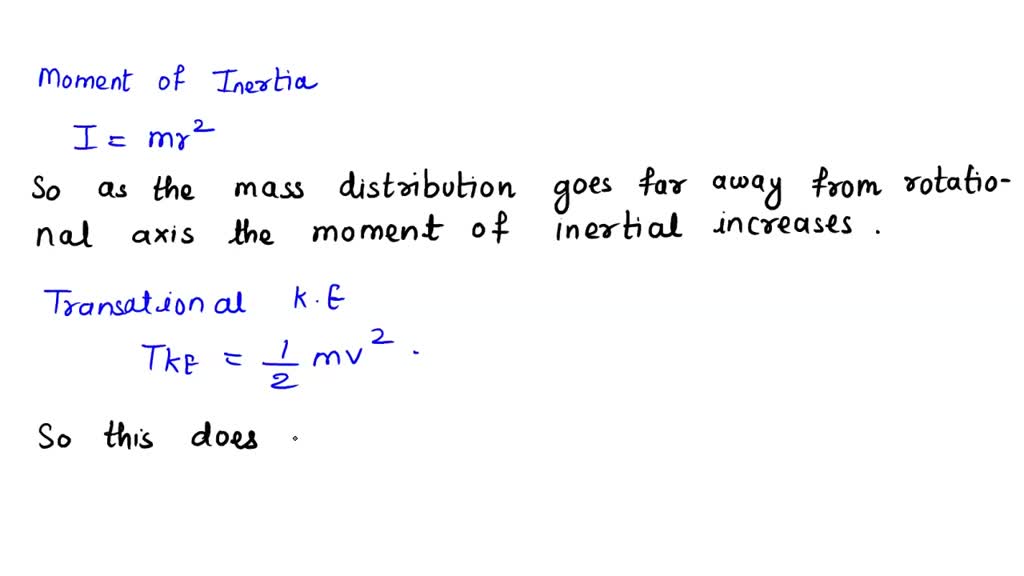 Moment of Inertia
I = mr²
So as the mass distribution goes far away from rotatio-
nal axis the moment of inertial increases .
Transational K.E
TKE = 1/2 mv² .
So this does .